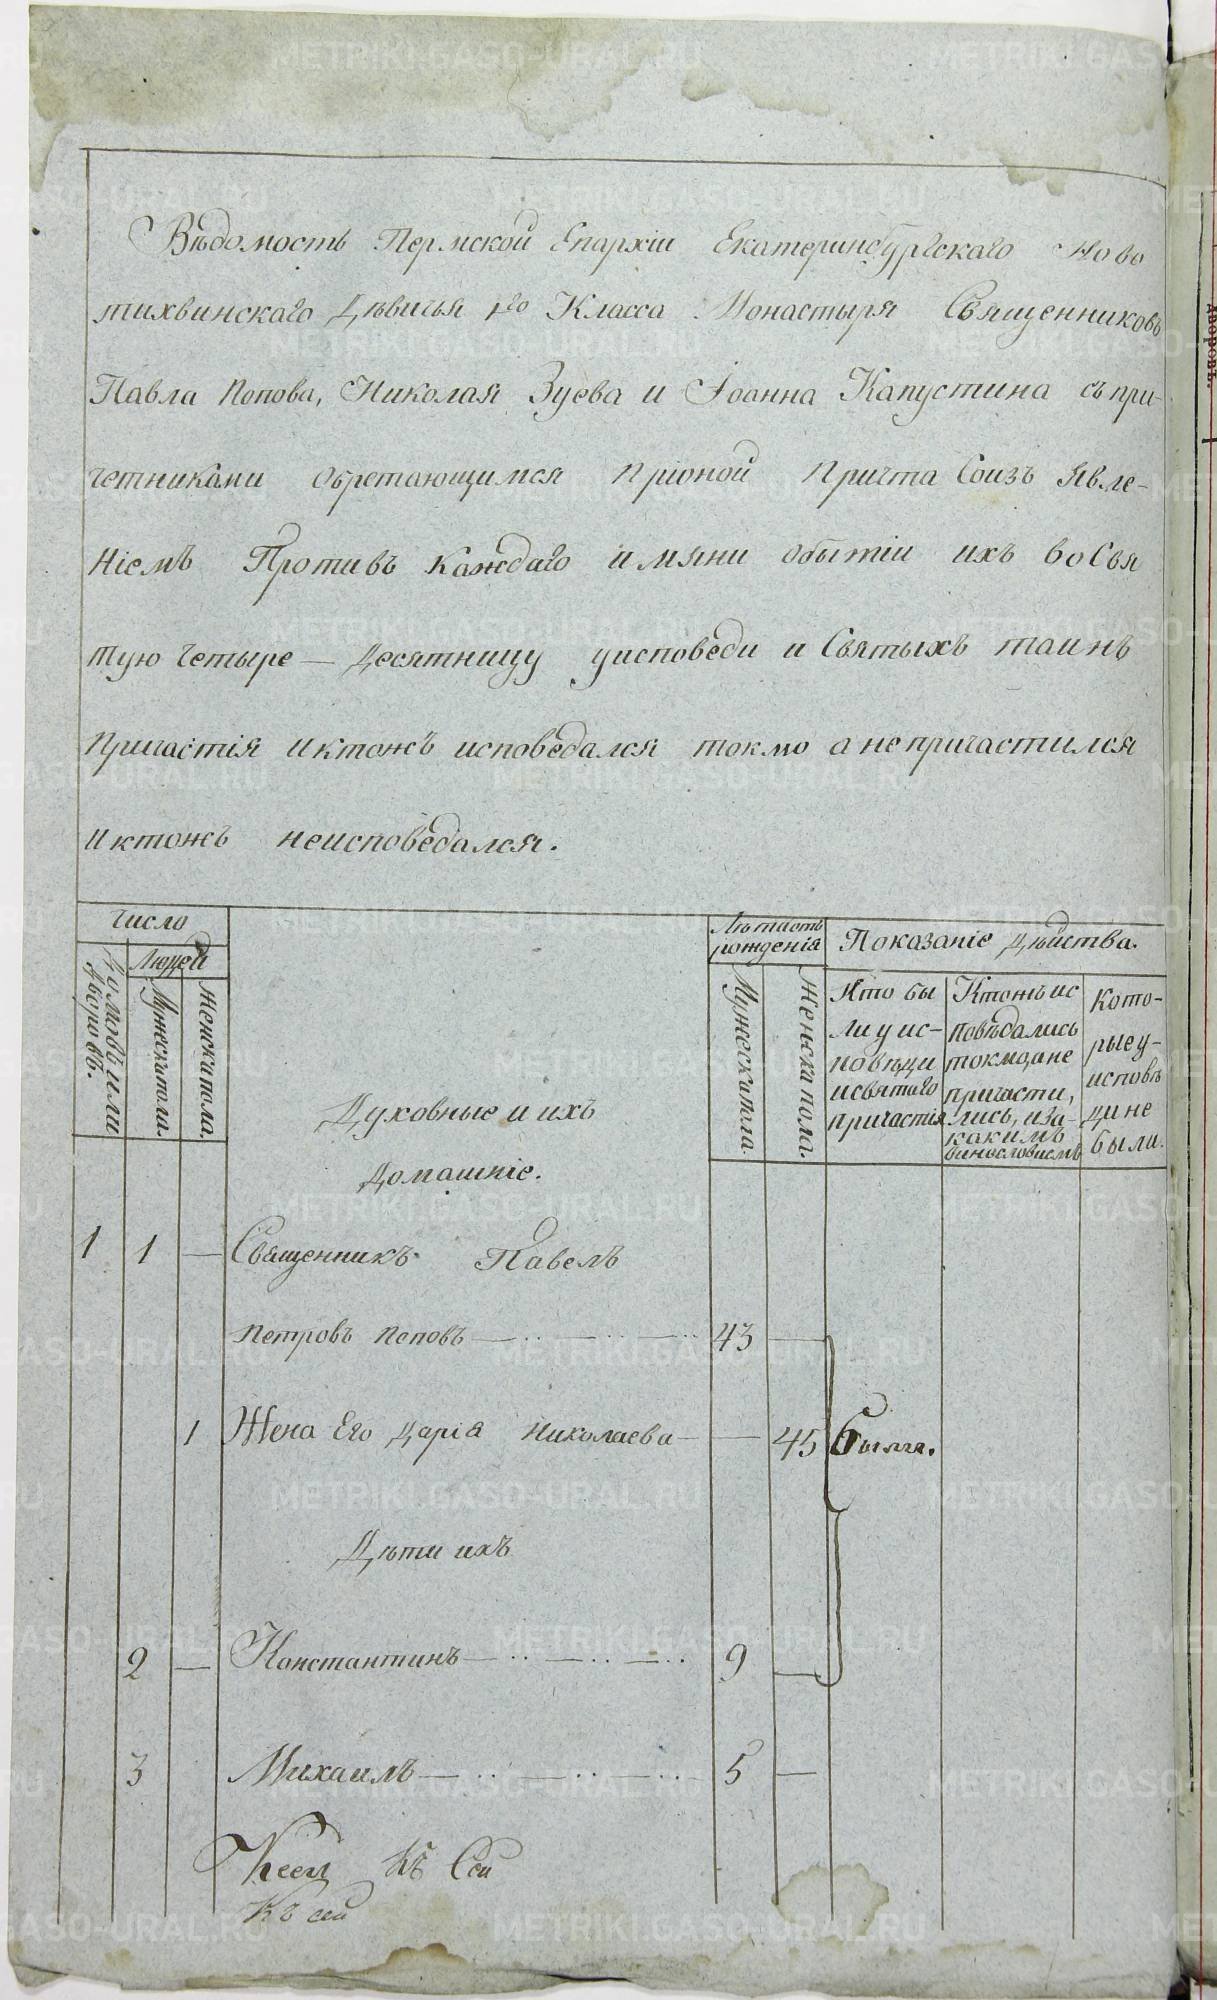 Вѣдомость Пермской Епархіи Екатеринбургскаго Ново
тихвинскаго Дѣвичья 1го Класса Монастыря Священниковъ
Павла Попова, Николая Зуева и Іоанна Капустина съ при-
четниками обретающимся приюной Причта Соизъ Явле-
ніемъ Противъ каждаго имяни обытіи ихъ во Свя
тую четыре — десятницу уисповеди и Святыхъ таинъ
Причастія и ктожъ исповедался токмо а не причастился
и ктожъ неисповедался.
Число
Людей
домовъ или дворовъ.
Мужеска пола.
Женска пола.
Духовные и ихъ
Домашніе.
Лѣта отъ рожденія
Мужеска пола.
Женска пола.
Показаніе дѣйства.
Кто бы
ли у ис-
повѣди
и святаго
причастія
Ктожъ ис
повѣдались
токмо, а не
причасти,
лись, и за-
какимъ
винословиемъ
Кото-
рые у-
исповѣ
ди не
были.
1 1 — Священникъ Павелъ
Петровъ Поповъ — 43 —
1 Жена Его Дарія Николаева — — 45 были.
Дѣти ихъ
2 — Константинъ — 9 —
3 Михаилъ — 5 —
Къ Сей
Къ сей
METRIKI.GASO-URAL.RU
дворовъ.